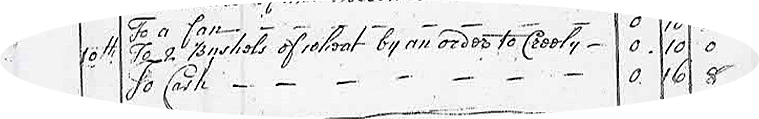 To a Can — — — — — — 0 10
10th To 2 Bushels of wheat by an order to Creely – 0 . 10 0
To Cash — — — — — — — 0. 16 8